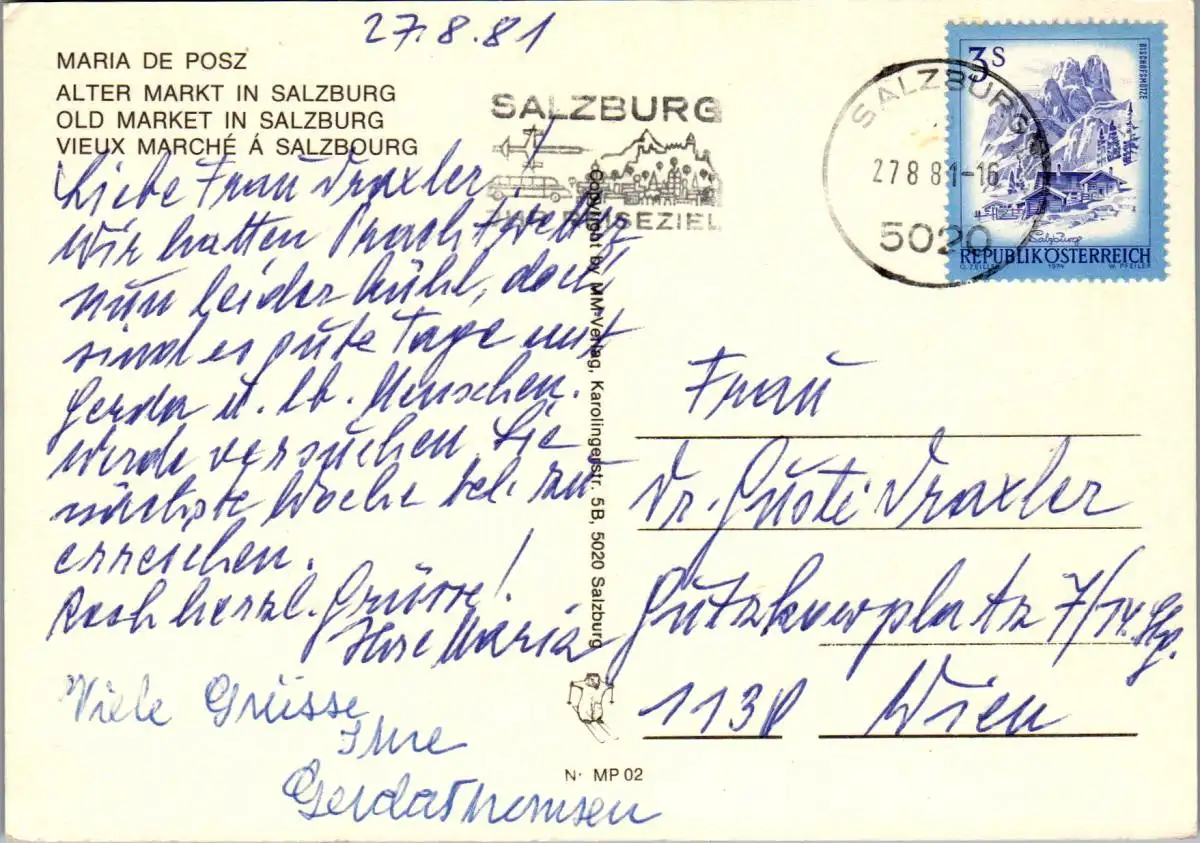 27.8.81
MARIA DE POSZ
ALTER MARKT IN SALZBURG
OLD MARKET IN SALZBURG
VIEUX MARCHÉ Á SALZBOURG
SALZBURG
IHR REISEZIEL
SALZBURG
27.8.81-16
5020
3 S
BISCHOFSMÜTZE
Salzburg
REPUBLIK ÖSTERREICH
O. ZEILLER 1974 W. PFEILER
Liebe Frau Draxler!
Wir hatten Prachtwetter
nun leider kühl, doch
sind es gute Tage mit
Gerda u. lb. Menschen.
Werde versuchen Sie
nächste Woche tel. zu
erreichen.
Recht herzl. Grüsse!
Ihre Maria
Viele Grüsse
Ihre
Gerda Thomsen
Copyright by MM-Verlag, Karolingerstr. 5B, 5020 Salzburg
N· MP 02
Frau
Dr. Gusti Draxler
Gutzkowplatz 7/14. Stg.
1130 Wien